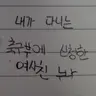 내가 다니는
축구부에 신승한
여사친 누나